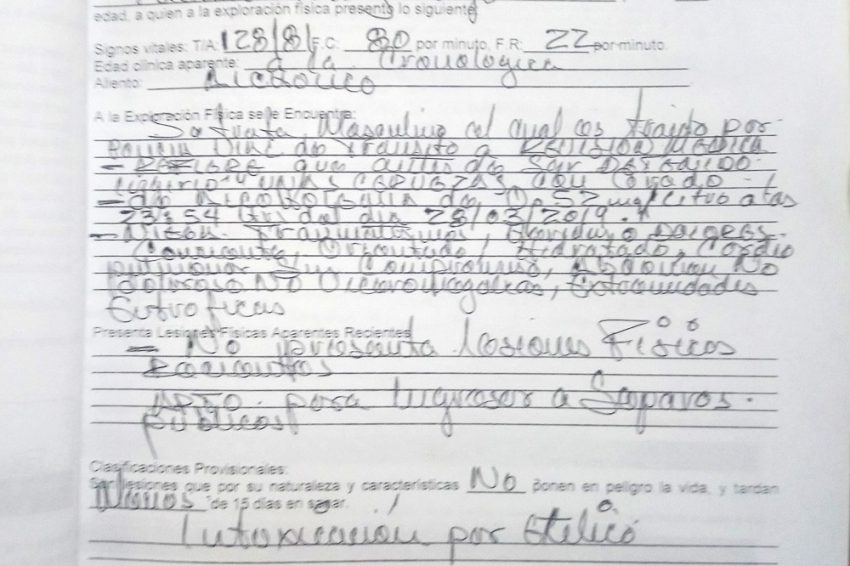 edad, a quien a la exploración física presenta lo siguiente
Signos vitales: T/A: 128/8 F.C: 80 por minuto, F.R: 22 por minuto.
Edad clínica aparente: a la Cronologica
Aliento: Alcoholico
A la Exploración Física se le Encuentra:
Se trata Masculino el cual es traido por
de transito a Revision Medica
– Refiere que antes de ser Detenido
– de Alcoholemia de 52 mg/Litro a las
23:54 del dia 28/03/2019.
Consciente, Orientado, Hidratado, Cardio
pulmonar Sin Compromiso, Abdomen No
doloroso No Visceromegalias, Extremidades
Eutroficas
Presenta Lesiones Físicas Aparentes Recientes
– No presenta Lesiones Fisicas
APTO. para Ingresar a Separos.
públicos
Clasificaciones Provisionales:
Son lesiones que por su naturaleza y características No ponen en peligro la vida, y tardan
Menos de 15 días en sanar.
Intoxicación por Etilico